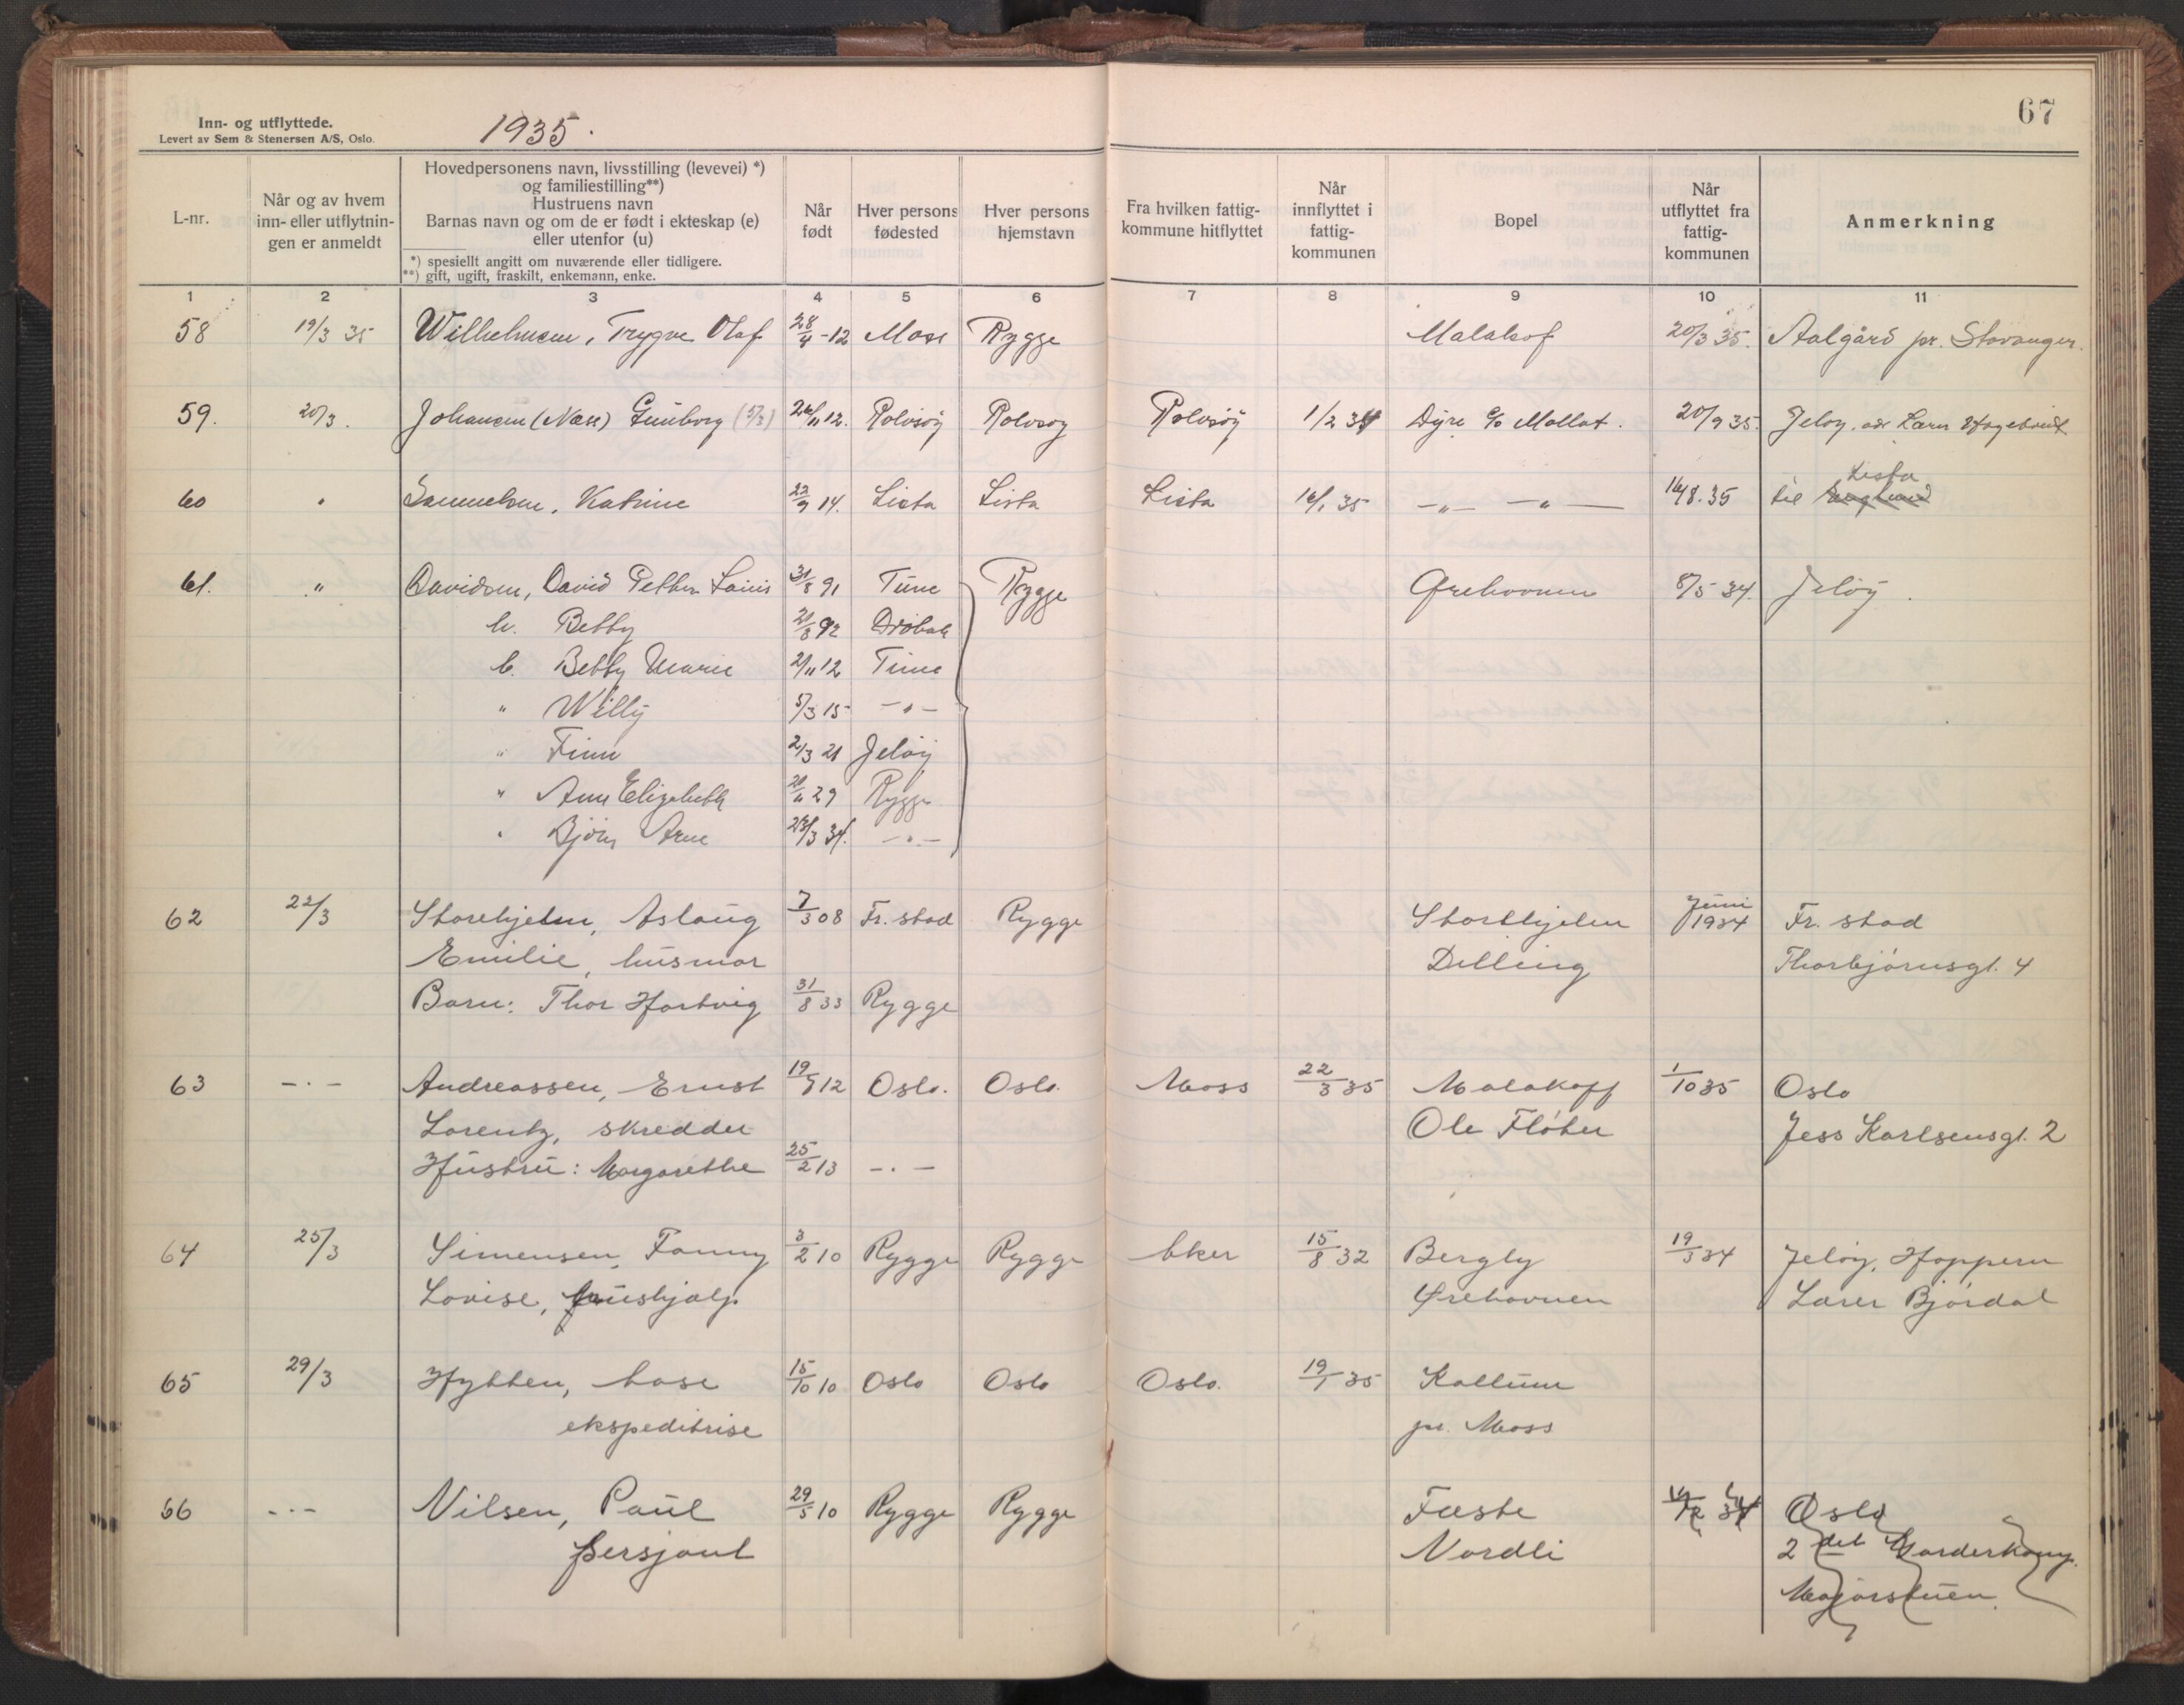 67
Inn- og utflyttede.
Levert av Sem & Stenersen A/S, Oslo.
1935.
L-nr.
Når og av hvem inn- eller utflytnin- gen er anmeldt
Hovedpersonens navn, livsstilling (levevei) *)
og familiestilling**)
Hustruens navn
Barnas navn og om de er født i ekteskap (e)
eller utenfor (u)
*) spesiellt angitt om nuværende eller tidligere.
**) gift, ugift, fraskilt, enkemann, enke.
Når født
Hver persons fødested
Hver persons hjemstavn
Fra hvilken fattig- kommune hitflyttet
Når innflyttet i fattig- kommunen
Bopel
Når utflyttet fra fattig- kommunen
Anmerkning
1 2 3 4 5 6 7 8 9 10 11
58 19/3 35 Wilhelmsen, Trygve Olaf 28/4 -12 Moss Rygge Malakof 20/3 35. Aalgård pr. Stavanger.
59. 20/3. Johansen (Næss) Gunborg (5/3) 26/11 12. Rolvsöy Rolvsoy Rolvsöy 1/2 34 Dyre c/o Mollat. 20/9 35. Jeloy, adr Lærer
60 " Samuelsen, Katrine 22/9 14. Lista Lista Lista 16/1 35 -"- -"- 16/8. 35 til Lista
61. " Davidsen, David Petter Louis 31/8 91 Tune Rygge Ørehavnen 8/5 34. Jeløy.
h. Betty 21/8 92 Drøbak
b. Betty Marie 2/11 12 Tune
" Willy 5/3 15 -"-
" Finn 2/3 21 Jeløy
" Ann Elizabeth 21/11 29 Rygge
" Bjørn Arne 23/3 34. -"-
62 22/3 Storehjelm, Aslaug 7/3 08 Fr. stad Rygge Storehjelm Juni 1934 Fr. stad
Emilie, husmor Dilling Thorbjørnsgt. 4
Barn: Thor Hartvig 31/8 33 Rygge
63 -.- Andreassen, Ernst 19/5 12 Oslo. Oslo. Moss 22/3 35 Malakoff 1/10 35 Oslo
Lorentz, skredder Ole Fløter Jess Karlsensgt. 2
Hustru: Margarethe 25/2 13 -.-
64 25/3 Simensen, Fanny 3/2 10 Rygge Rygge Aker 15/8 32 Bergly 19/3 34 Jeløy, Hoppern
Lovise, hushjælp. Ørehavnen Lærer Bjørdal
65 29/3 Hytten, Aase 15/10 10 Oslo Oslo Oslo. 19/1 35 Kallum
ekspeditrise pr. Moss
66 -.- Nilsen, Paul 29/5 10 Rygge Rygge Fuste 34 Oslo
sersjant Nordli 2det Garderkomp.
Majorstuen.